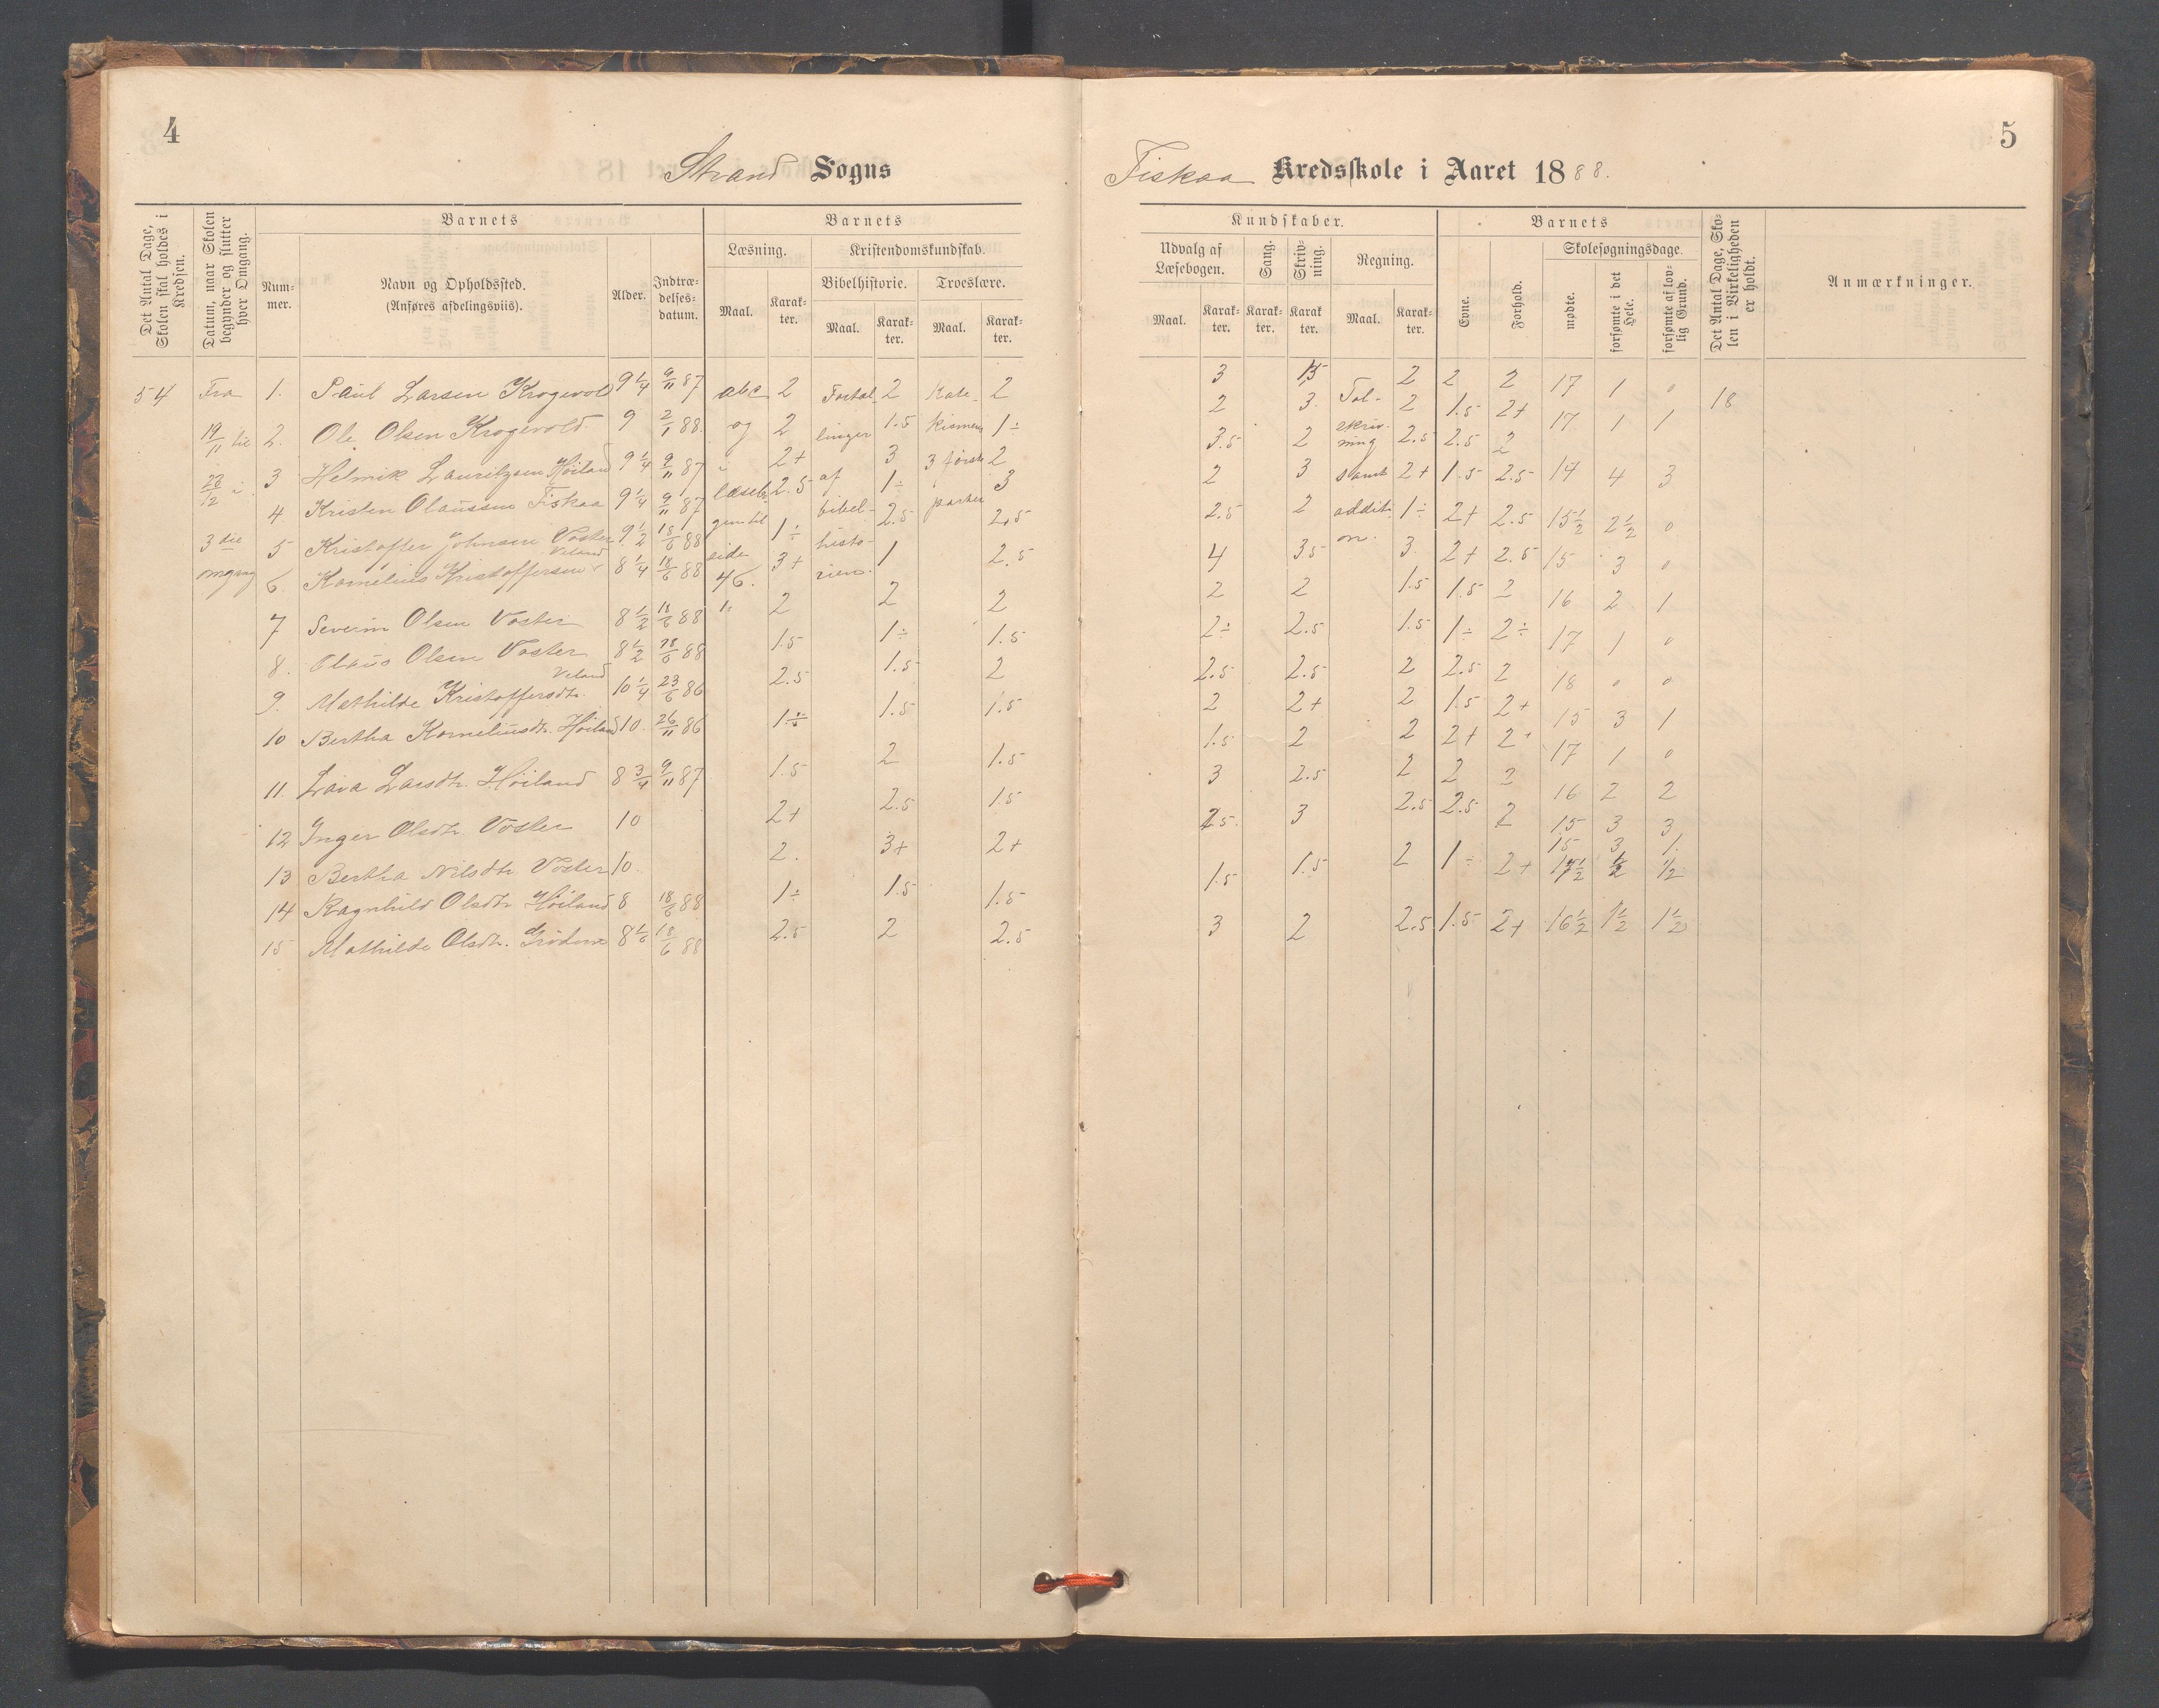 4
Strand Sogns
Det Antal Dage, Skolen skal holdes i Kredsen.
Datum, naar Skolen begynder og slutter hver Omgang.
Barnets
Num-
mer.
Navn og Opholdssted.
(Anføres afdelingsviis).
Alder.
Indtræ-
delses-
datum.
Barnets
Læsning.
Kristendomskundskab.
Maal.
Karak-
ter.
Bibelhistorie.
Troeslære.
Maal.
Karak-
ter.
Maal.
Karak-
ter.
54 Fra 1. Paul Larsen Krogevold 9 1/4 9/11 87 abc 2 Fortæl- 2 Kate- 2
19/11 til 2. Ole Olsen Krogevold 9 2/1 88. og 2 linger 1.5 kismen 1÷
3 Helmik Lauritzsen Høiland 9 1/4 9/11 87 i 2+ af 3 3 første 2
23/12 i 4 Kristen Olaussen Fiskaa 9 1/4 9/11 87 læseb. 2.5 bibel- 1÷ parter 3
3die 5 Kristoffer Johnsen Voster 9 1/2 18/6 88 gen til 1÷ histo- 2.5 2.5
omgang 6. Kornelius Kristoffersen Veland 8 1/4 18/6 88 side 46. 3+ rien. 1 2.5
7 Severin Olsen Voster 8 1/2 18/6 88 2 2 2
8. Olaus Olsen Voster 8 1/2 18/6 88 1.5 1÷ 1.5
9. Mathilde Kristoffersdtr. Veland 10 1/4 23/6 86 2.5 1.5 2
10 Bertha Korneliusdtr. Høiland 10. 26/11 86 1÷ 1.5 1.5
11. Lava Larsdtr. Høiland 8 3/4 9/11 87 1.5 2 1.5
12 Inger Olsdtr. Voster 10 2+ 2.5 1.5
13 Bertha Nilsdtr. Voster 10. 2. 3+ 2+
14 Ragnhild Olsdtr. Høiland 8 18/6 88 1÷ 1.5 1.5
15 Mathilde Olsdtr. 8 1/6 18/6 88 2.5 2 2.5
5
Fiskaa Kredsskole i Aaret 1888.
Kundskaber.
Udvalg af
Læsebogen.
Maal.
Karak-
ter.
Sang.
Karak-
ter.
Skriv-
ning.
Karak
ter.
Regning.
Maal.
Karak-
ter.
Barnets
Evne.
Forhold.
Skolesøgningsdage.
mødte.
forsømte i det Hele.
forsømte af lov-
lig Grund.
Det Antal Dage, Sko-
len i Virkeligheden
er holdt.
Anmærkninger.
3 1.5 Tal- 2 2 2 17 1 0 18
2 3. skriv- 2 1.5 2+ 17 1 1
3.5 2 ning 2.5 2.5 2 14 4 3
2 3 samt 2+ 1.5 2.5 15 1/2 2 1/2 0
2.5 2 addit. 1÷ 2+ 2.5 15 3 0
4 3.5 on. 3. 2+ 2.5 16 2 1
2 2 1.5 1.5 2 17 1 0
2÷ 2.5 1.5 1÷ 2÷ 18 0 0
2.5 2.5 2 2.5 2 15 3 1
2 2+ 2 1.5 2+ 17 1 0
1.5 2 2 2+ 2+ 16 2 2
3 2.5 2 2 2 15 3 3
2.5. 3 2.5 2.5 2 15 3 1.
1.5 1.5 2 1÷ 2+ 17 1/2 1/2 1/2
3 2 2.5 1.5 2+ 16 1/2 1 1/2 1 1/2